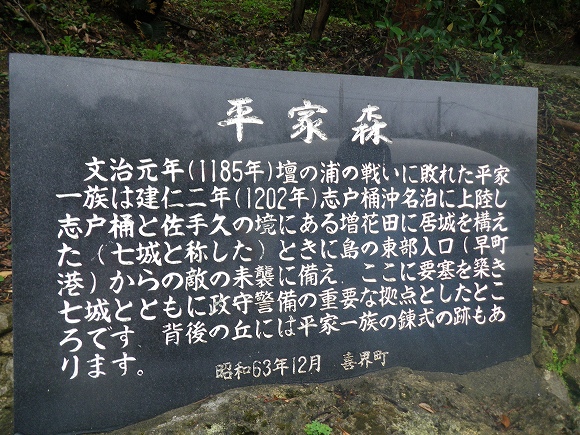 平家森
文治元年(1185年)壇の浦の戦いに敗れた平家
一族は建仁二年(1202年)志戸桶沖名泊に上陸し
志戸桶と佐手久の境にある増花田に居城を構え
た(七城と称した)ときに島の東部入口(早町
港)からの敵の来襲に備え、ここに要塞を築き
七城とともに政守警備の重要な拠点としたとこ
ろです 背後の丘には平家一族の錬式の跡もあ
ります。
昭和63年12月 喜界町